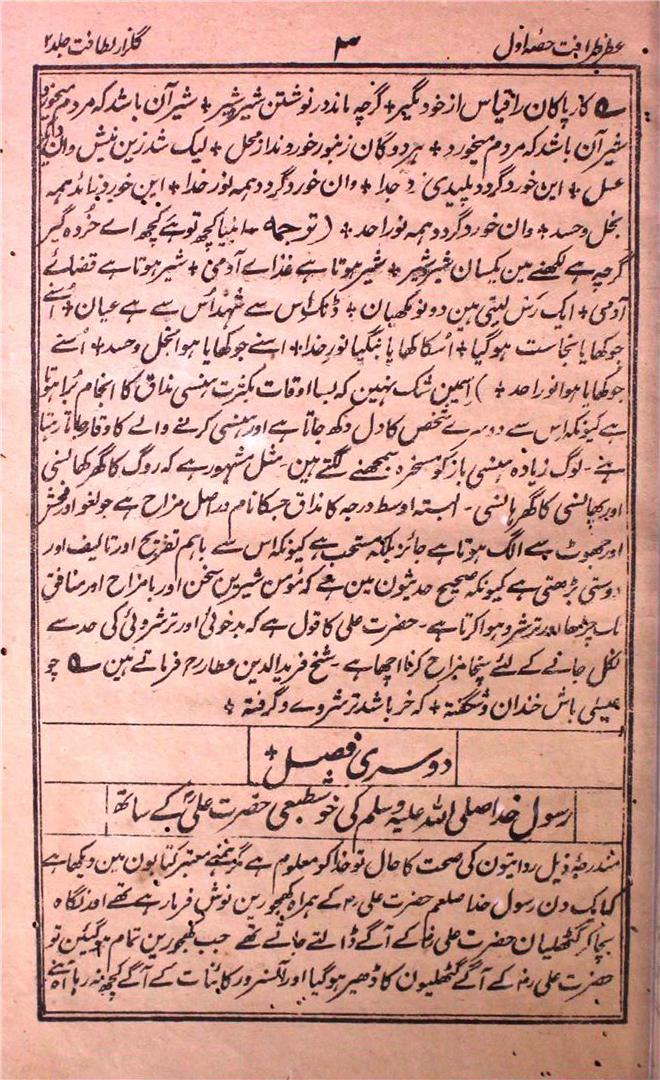 عطر ظرافت حصّہ اوّل ۳ گلزار لطافت جلد ۲
کار پاکان را قیاس از خود مگیر + گرچہ ماند در نوشتن شیر و شیر + شیر آن باشد کہ مردم میخورد
شیر آن باشد کہ مردم میخورد + ہر دو گان زنبور خوردند از محل + لیک شد زین نیش و ان دیگر
عسل + این خورد گردد پلیدی زو جدا + وان خورد گردد ہمہ نور خدا + این خورد زاید ہمہ
بخل و حسد + وان خورد گردد ہمہ نور احد + (ترجمہ کچھ تو ہے کچھ اے خُردہ گیر
گرچہ ہے لکھنے مین یکسان شیر و شیر + شیر ہوتا ہے غذاے آدمی + شیر ہوتا ہے قضائے
آدمی + ایک رَس لیتی ہین دو نو مکھیان + ڈنک اِس سے شہد اُس سے ہے عیان + اِسنے
جو کھایا نجاست ہو گیا + اُسکا کھایا بنگیا نورِ خدا + اسنے جو کھایا ہوا بخل و حسد + اُسنے
جو کھایا ہوا نورِ احد +) اِسمین شک نہین کہ بسا اوقات بکثرت ہنسی مذاق کا انجام بُرا ہوتا
ہے کیونکہ اس سے دوسرے شخص کا دل دکھ جاتا ہے اور ہنسی کرنے والے کا وقار جاتا رہتا
ہے - لوگ زیادہ ہنسی باز کو مسخرہ سمجھنے لگتے ہین - مثل مشہور ہے کہ روگ کا گھر کھانسی
اور پھانسی کا گھر ہانسی - البتہ اوسط درجہ کا مذاق جسکا نام در اصل مزاح ہے جو لغو اور فحش
اور جھوٹ سے الگ ہوتا ہے جائز بلکہ مستحب ہے کیونکہ اس سے باہم تفریح اور تالیف اور
دوستی بڑھتی ہے کیونکہ صحیح حدیثون مین ہے کہ مومن شیرین سخن اور با مزاح اور منافق
ناک چڑھا اور ترشرو ہوا کرتا ہے - حضرت علی کا قول ہے کہ بدخوئی اور ترشروئی کی حد سے
نکل جانے کے لئے سچا مزاح کرنا اچھا ہے - شیخ فرید الدین عطار رح فرماتے ہین چو
عیسٰی باش خندان و شگفتہ + کہ خر باشد ترشروے و گرفتہ +
دوسری فصل +
رسول خدا صلی اللہ علیہ وسلم کی خوشطبعی حضرت علیؓ کے ساتھ
مندرجۂ ذیل روایتون کی صحت کا حال تو خدا کو معلوم ہے مگر ہمنے معتبر کتابون مین دیکھا ہے
کہ ایک دن رسول خدا صلعم حضرت علی رض کے ہمراہ کھجورین نوش فرما رہے تھے اور نگاہ
بچا کر گٹھلیان حضرت علی رض کے آگے ڈالتے جاتے تھے جب کھجورین تمام ہو گئین تو
حضرت علی رض کے آگے گٹھلیون کا ڈھیر ہو گیا اور آنسرور کائنات کے آگے کچھ نہ رہا آپنے